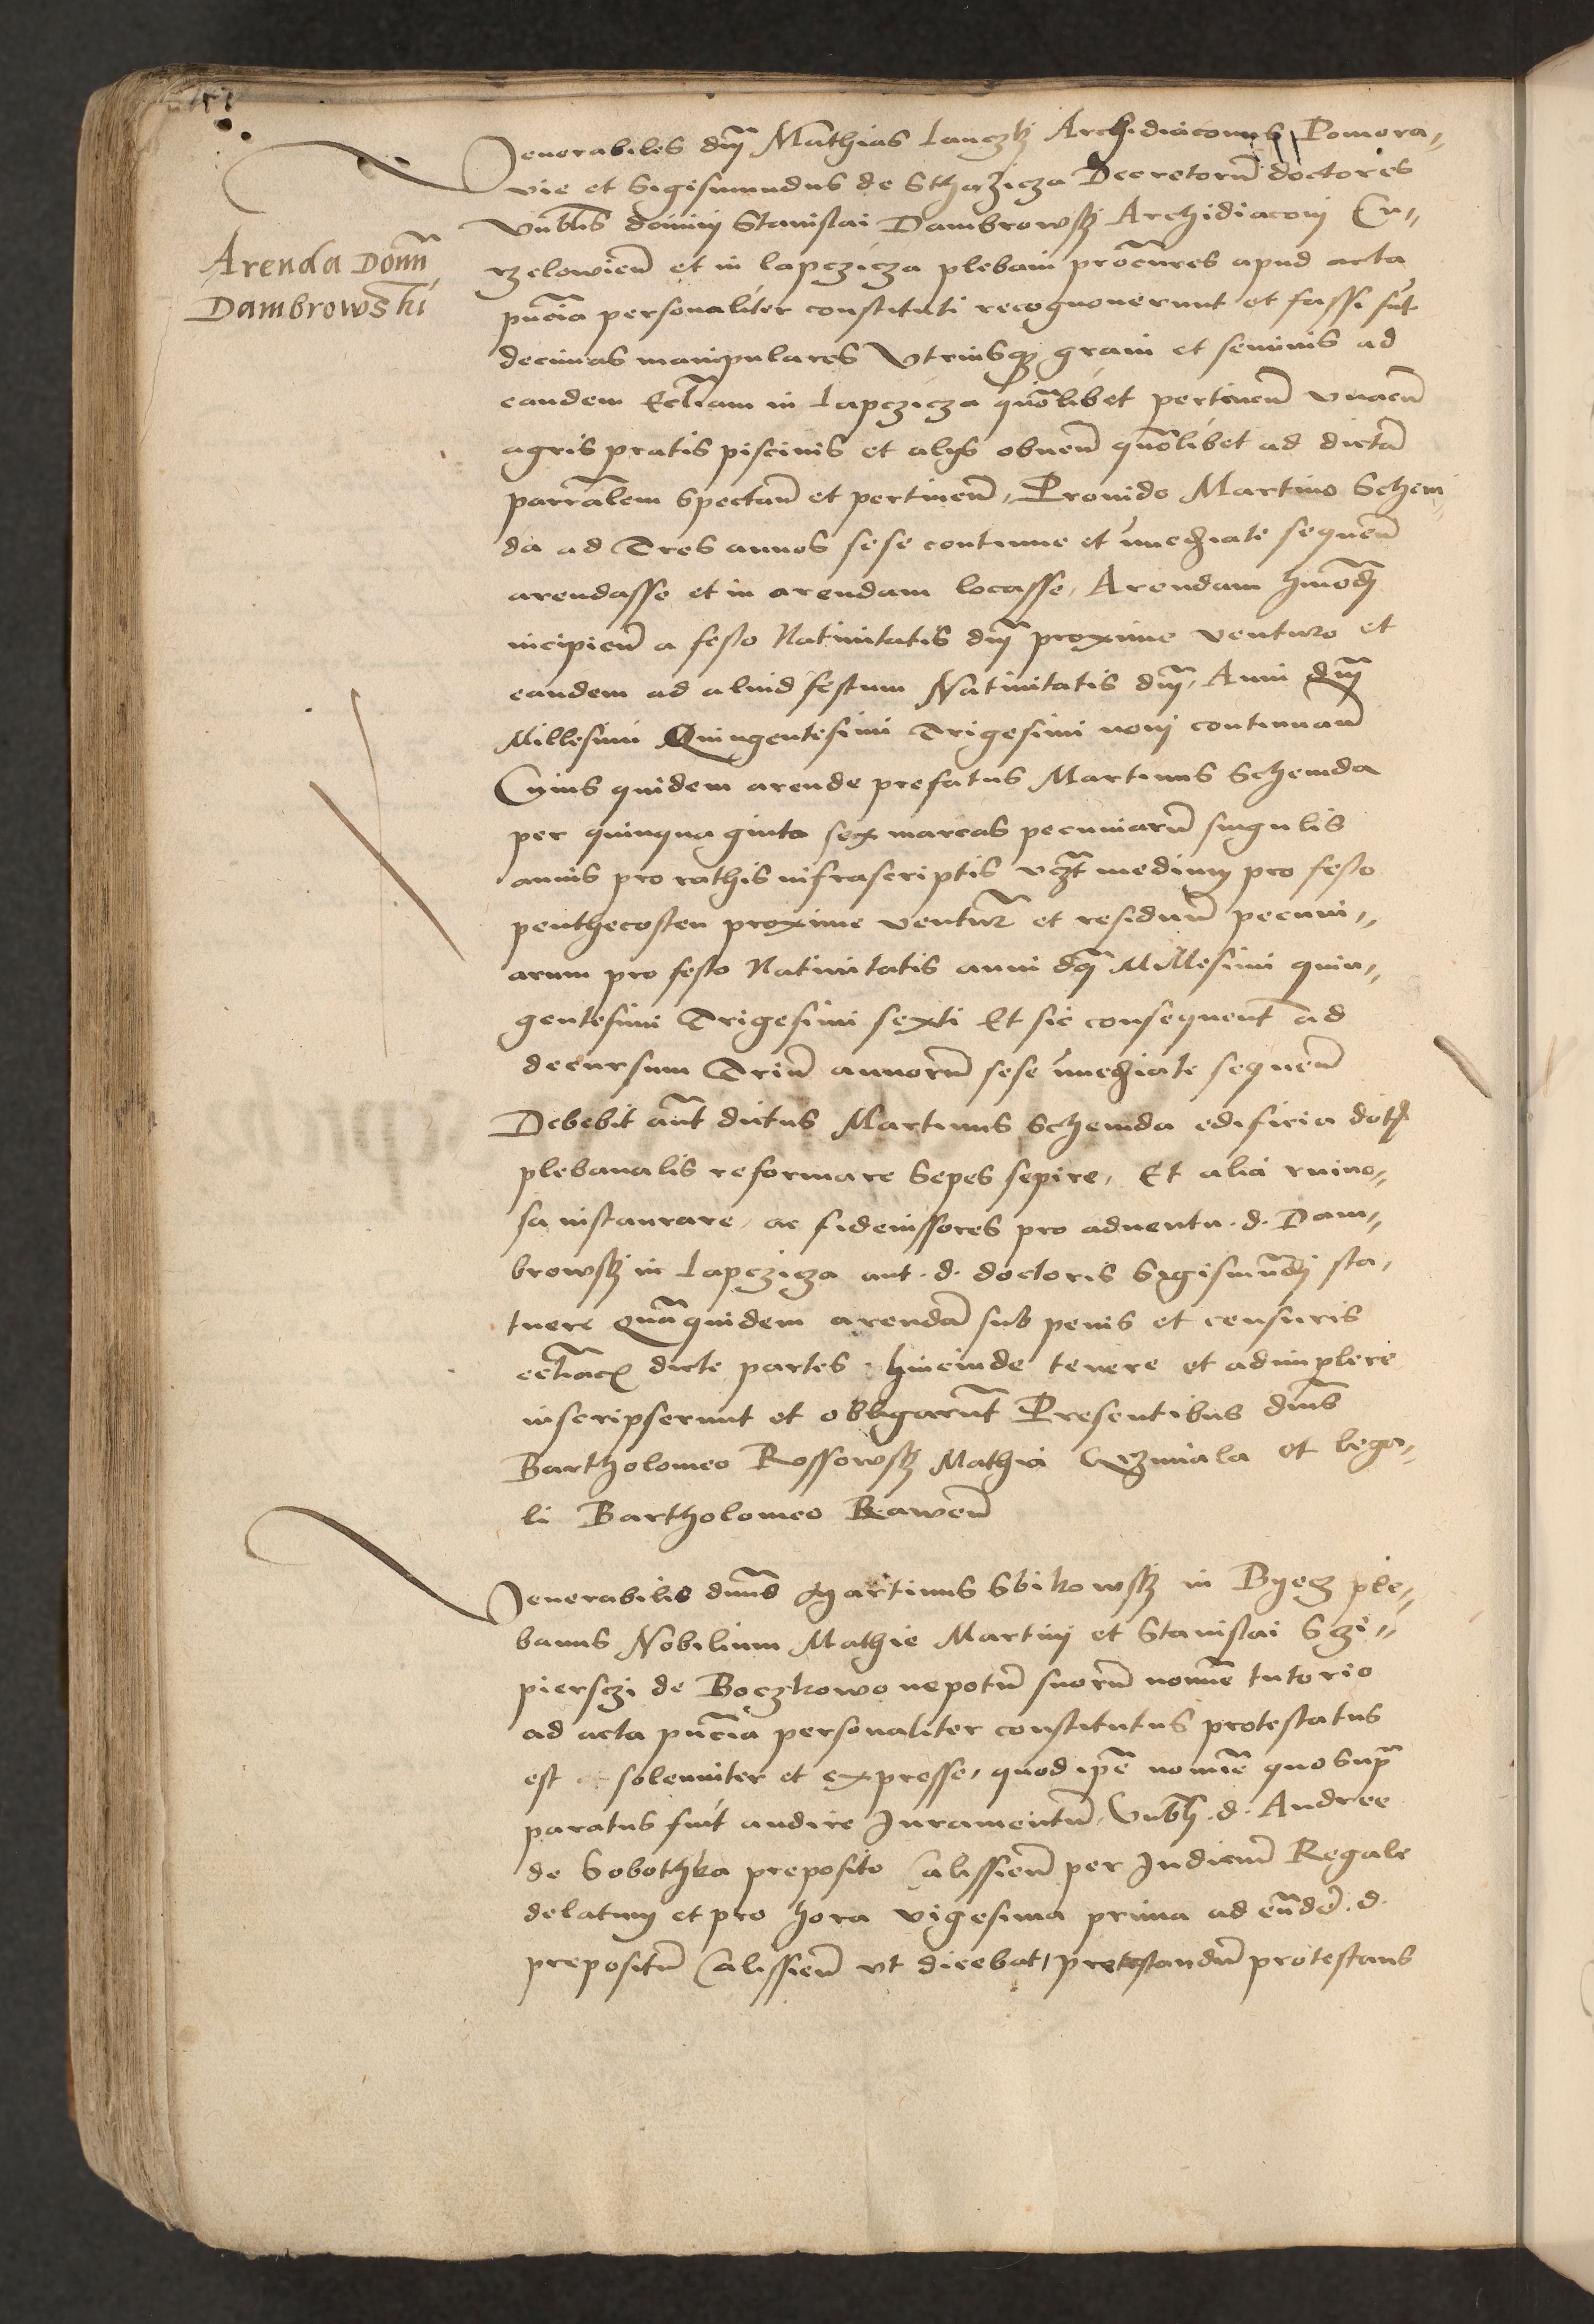 Venerabiles dnī Mathias Lanczkj Archidiaconus Pomora-
vie et Sigismundus de Sthezicza Decretorū doctores
Vnblis domini Stanislai Dambrowskj Archidiaconj Cu-
rzelowieñ et in Lapczicza plebani procures apud acta
Arenda Domī
Dambrowski
pñcia personaliter constituti recognouerunt et fassi sūt
decimas manipulares vtriusqȝ grani et seminis ad
eandem Ecliam in Lapczicza quōlibet pertineñ vnacū
agris pratis piscinis et alijs obueñ quōlibet ad dictā
parralem spectañ et pertineñ, Prouido Martino Schem
da ad Tres annos sese continue et immediate sequeñ
arendasse et in arendam locasse, Arendam hmōdj
incipieñ a festo Natiuitatis dnī proxime venturo et
eandem ad aliud festum Natiuitatis dnī, Anni dnī
Millesimi Quingentesimi Trigesimi nonj continuañ
Cuius quidem arende prefatus Martinus Schemda
per quinquaginta sex marcas pecuniarū singulis
annis pro rathis infrascriptis vczt medium pro festo
penthecosten proxime ventur et residuū pecuni-
arum pro festo Natiuitatis anni dnj Millesimi quin-
gentesimi Trigesimi sexti Et sic consequent ad
decursum Triū annorū sese immediate sequeñ
Debebit aūt dictus Martinus Schemda edificia dotis
plebanalis reformare Sepes sepire, Et alia ruino-
sa instaurare, ac fideiussores pro aduentu .d. Dam-
browskj in Lapczicza aut .d. doctoris Sigismūdi sta-
tuere Quāquidem arendā sub penis et censuris
ecliacis dicte partes hincinde tenere et adimplere
inscripserunt et obligarūt Presentibus dnīs
Bartholomeo Rossowskj Mathia et lega-
li Bartholomeo
Venerabilis dnūs Martinus Sbikowskj in Byecz ple-
banus Nobilium Mathie Martinj et Stanislai Szi-
pierszi de Boczkowo nepotū suorū nomīe tutorio
ad acta pñcia personaliter constitutus protestatus
est solenniter et expresse, quod ipē nomīe quo supra
paratus fuit audire Juramentū, Vnblj .d. Andree
de Sobothka preposito Calissieñ per Judiciū Regale
delatum et pro hora vigesima prima ad eūdē .d.
prepositū Calissieñ vt dicebat, protestandū protestans